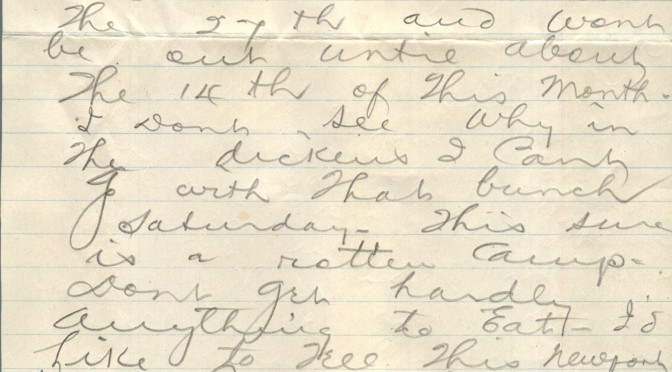 The 27th and wont
be out untie about
The 14 th of This Month.
I Dont see Why in
The dickens I Cant
go with That bunch
Saturday - This sure
is a rotten Camp -
Dont get hardly
Anything to Eat - I'd
Like to Tell This Newport